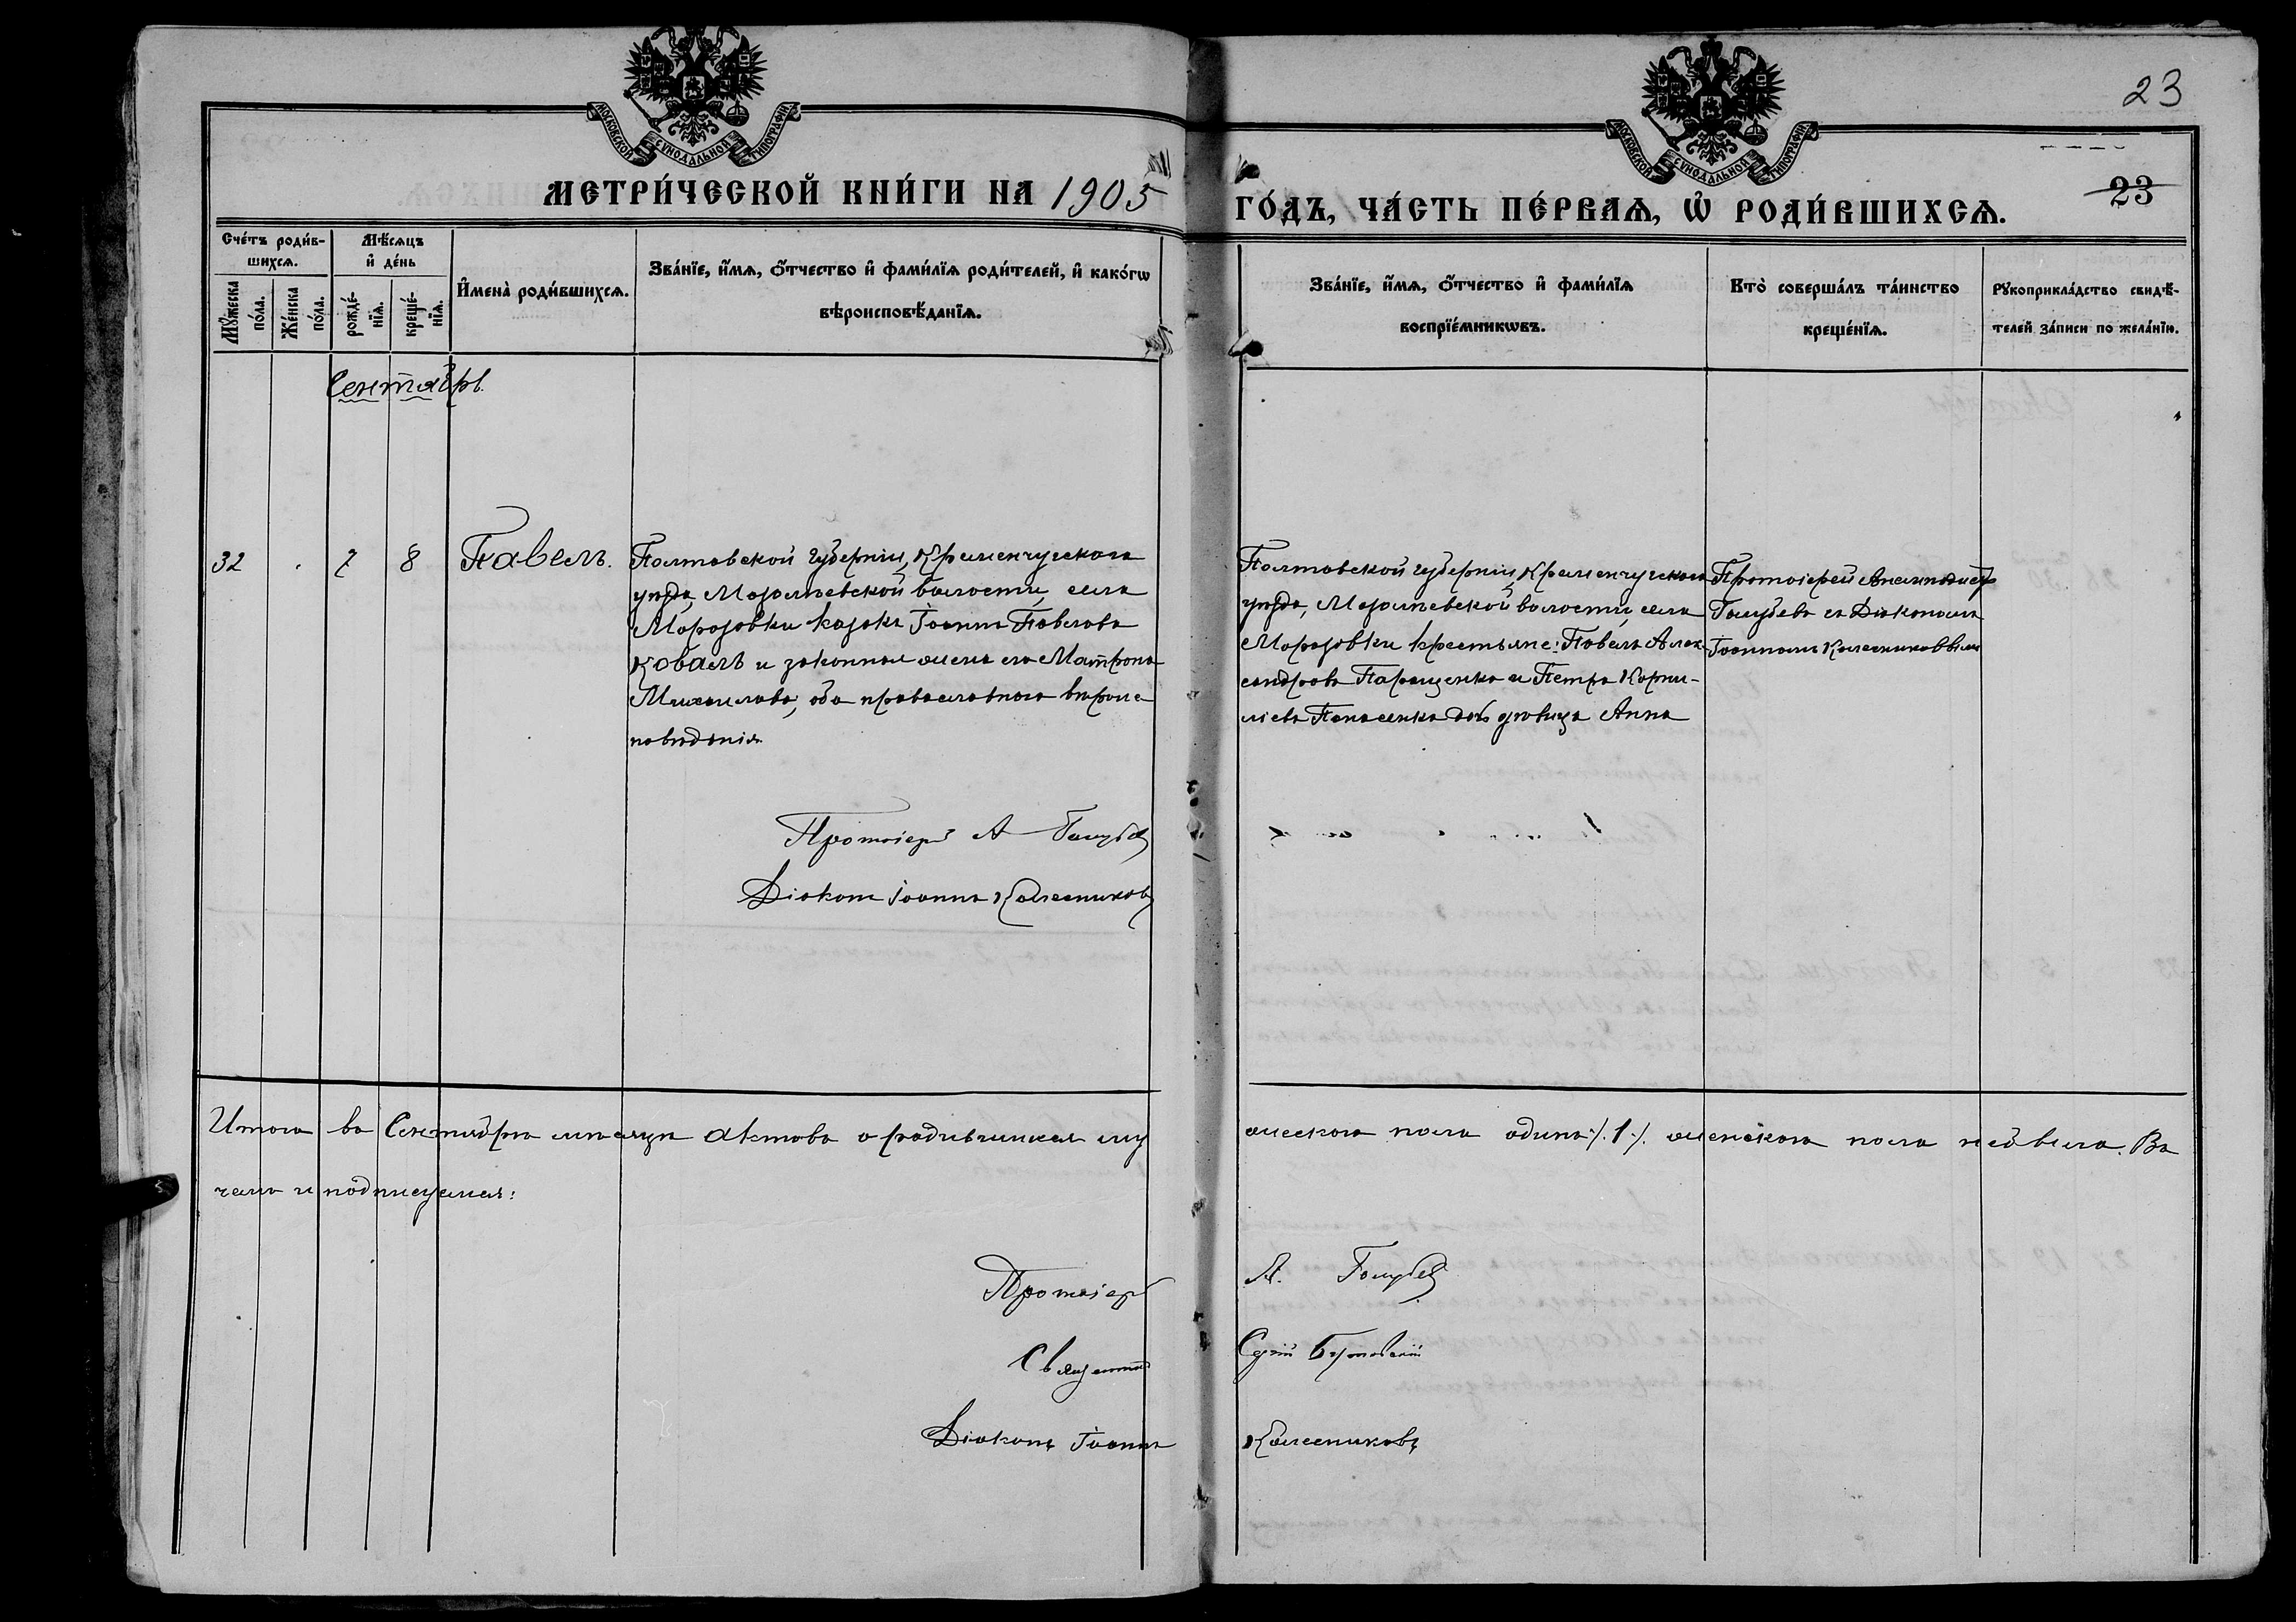 23
МОСКОВСКОЙ СѴНОДАЛЬНОЙ ТИПОГРАФІИ
МОСКОВСКОЙ СѴНОДАЛЬНОЙ ТИПОГРАФІИ
МЕТРИ́ЧЕСКОЙ КНИ́ГИ НА 1905
ГО́ДЪ, ЧА́СТЬ ПЕ́РВАѦ, Ѡ҆ РОДИ́ВШИХСѦ.
23
Сче́тъ роди́в-
шихсѧ.
Мѣ́сѧцъ
и҆ де́нь
Мꙋ́жеска
по́ла.
Же́нска
по́ла.
рожде́-
нїѧ.
креще́-
нїѧ.
И҆мена̀ роди́вшихсѧ.
Зва́нїе, и҆́мѧ, ѻ҆́тчество и҆ фами́лїѧ роди́телей, и҆ како́гѡ
вѣроисповѣ́данїѧ.
Зва́нїе, и҆́мѧ, ѻ҆́тчество и҆ фами́лїѧ
воспрїе́мникѡвъ.
Кто̀ соверша́лъ та́инство
креще́нїѧ.
Рꙋкоприкла́дство свидѣ́-
телей за́писи по жела́нїю.
Сентябрь.
32 7 8 Павелъ.
Полтавской губерніи, Кременчугскаго
уѣзда, Морозовской волости, села
Морозовки козакъ Іоаннъ Павловъ
Коваль и законная жена его Матрона
Михаилова, оба православнаго вѣроис
повѣданія
Протоіерей А Голубев
Діаконъ Іоаннъ Колесниковъ
Полтавской губерніи, Кременчугскаго
уѣзда, Морозовской волости, села
Морозовки крестьяне: Павелъ Алек
сандровъ Паращенко и Петра Корни-
ліева Панасенка дочь дѣвица Анна
Протоіерей
Голубевъ съ Діакономъ
Іоанномъ Колесниковымъ
Итого въ Сентябрѣ мѣсяцѣ актовъ о родившихся му
жескаго пола одинъ ./. 1 ./. женскаго пола не было. Въ
чемъ и подписуемся:
Протоіерей А. Голубев
Священник Сергій Бутовскій
Діаконъ Іоаннъ Колесниковъ